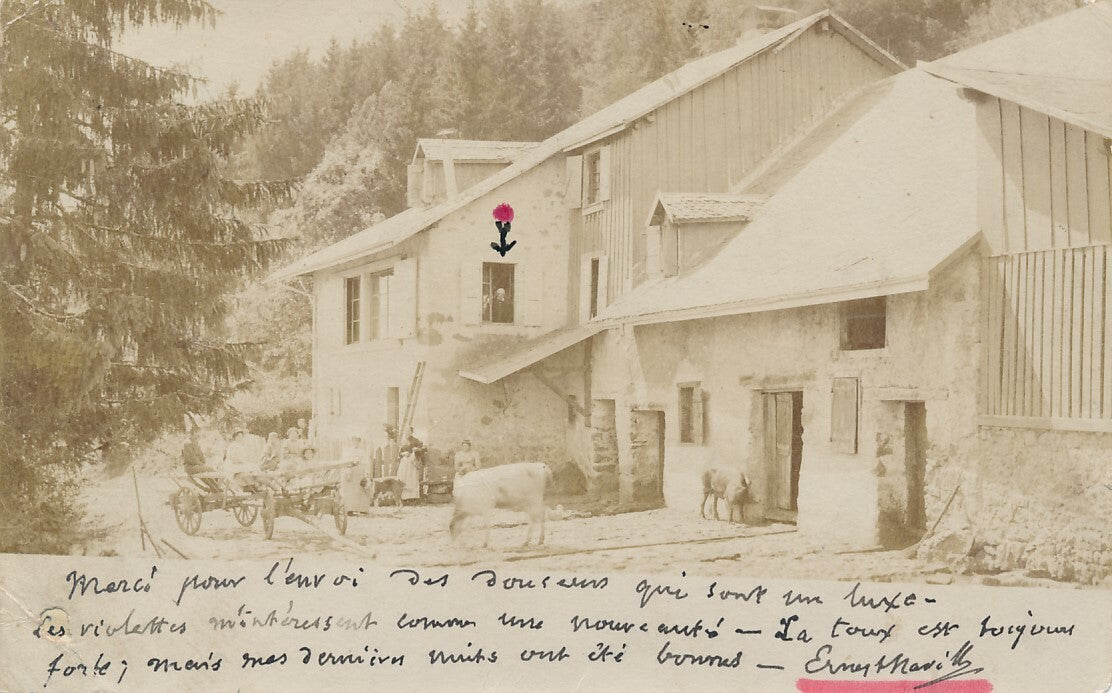 Merci pour l'envoi des douceurs qui sont un luxe -
Les violettes m'intéressent comme une nouveauté - La toux est toujours
forte; mais mes dernières nuits ont été bonnes - Ernest Naville